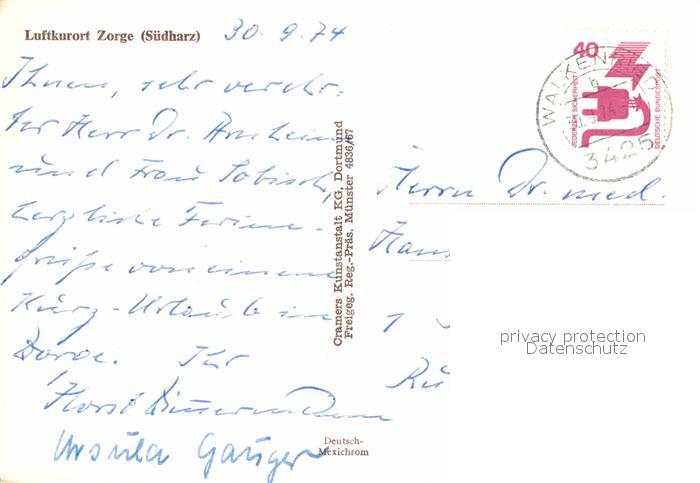 Luftkurort Zorge (Südharz)
30.9.74
Ihnen, sehr verehr-
ter Herr Dr. Arnheim
und Frau Tobisch,
herzliche Ferien-
grüße von einem
Kurz-Urlaub in
Zorge. Ihr
Horst
Ursula Gauger
Cramers Kunstanstalt KG, Dortmund
Freigeg. Reg.-Präs. Münster 4838/67
Deutsch-
Mexichrom
40
JEDERZEIT SICHERHEIT
DEUTSCHE BUNDESPOST
WALKENRIED
3425
Herrn Dr. med.
Hans
1
Rü
privacy protection
Datenschutz